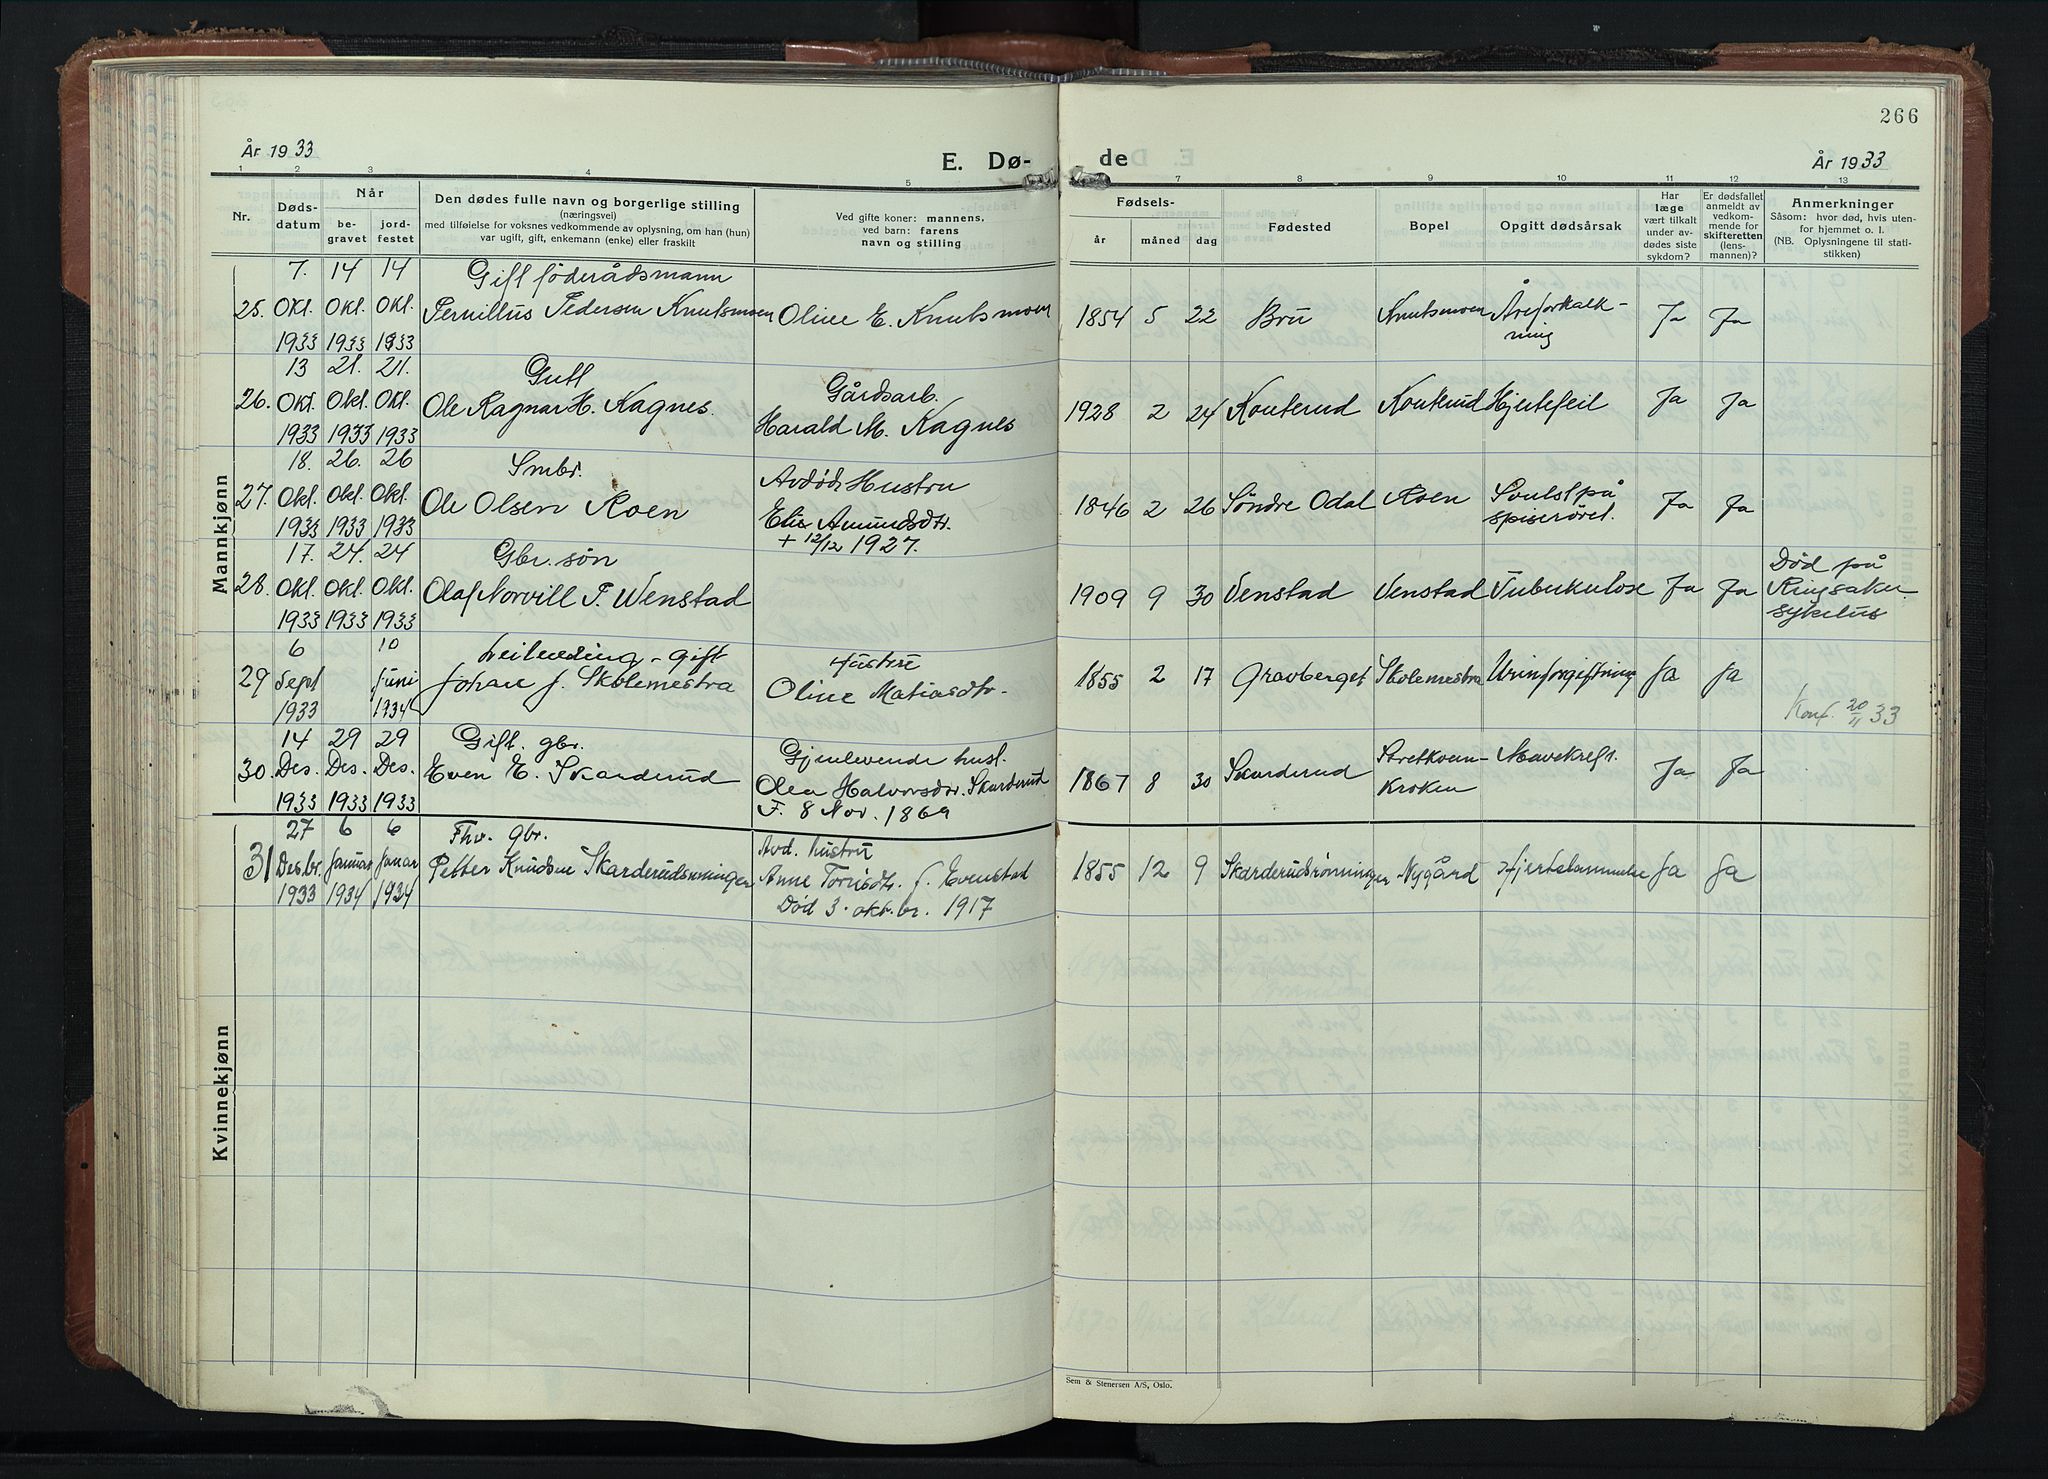 266
År 1933
E. Dø-
de
År 1933
1 2 3 4 5
7 8 9 10 11 12 13
Nr.
Døds-
datum
Når
be-
gravet
jord-
festet
Den dødes fulle navn og borgerlige stilling
(næringsvei)
med tilføielse for voksnes vedkommende av oplysning, om han (hun)
var ugift, gift, enkemann (enke) eller fraskilt
Ved gifte koner: mannens,
ved barn: farens
navn og stilling
Fødsels-
år måned dag
Fødested
Bopel
Opgitt dødsårsak
Har
læge
vært tilkalt
under av-
dødes siste
sykdom?
Er dødsfallet
anmeldt av
vedkom-
mende for
skifteretten
(lens-
mannen)?
Anmerkninger
Såsom: hvor død, hvis uten-
for hjemmet o. l.
(NB. Oplysningene til stati-
stikken)
Mannkjønn
7. 14 14 Gift föderådsmann
25. Okt. Okt. Okt. Pernillus Pedersen Knutsmoen Oline E. Knutsmoen 1854 5 22 Bru Knutsmoen Åreforkalk-
1933 1933 1933 ning Ja Ja
13 21. 21. Gutt Gårdsarb.
26. Okt. Okt. Okt. Ole Ragnar H. Kagnes. Harald M. Kagnes 1928 2 24 Konterud Konterud Hjertefeil Ja Ja
1933 1933 1933
18. 26. 26 Smbr. Avdöde Hustru
27. Okt. Okt. Okt. Ole Olsen Roen Elie Amundsdtr. 1846 2 26 Söndre Odal Roen Svulst på
1933 1933 1933 + 12/12 1927. spiserøret. Ja Ja
17. 24. 24 Gbr. sön Død på
28. Okt. Okt. Okt. Olaf Norvill T. Wenstad 1909 9 30 Venstad Venstad Tuberkulose Ja Ja Ringsaker
1933 1933 1933 sykehus
6 10 Leilending - gift Hustru
29 Sept Juni Johan J. Skolemestra Oline Matiasdtr. 1855 2 17 Gravberget Skolemestra Urinforgiftning Ja Ja
1933 1934 Konf. 20/11 33
14 29 29 Gift. gbr. Gjenlevende hust.
30. Des. Des. Des. Even E. Skarderud Olea Halvorsdtr. Skarderud 1867 8 30 Skarderud Mavekreft. Ja Ja
1933 1933 1933 F. 8 Nov. 1869 Kroken
27 6 6 Fhv. gbr. Avd. hustru
31 Desbr. Januar Januar Petter Knudsen Anne f. Evenstad 1855 12 9 Skarderudsrønningen Nygård Hjertelammelse Ja Ja
1933 1934 1934 Død 3. oktbr. 1917
Kvinnekjønn
Sem & Stenersen A/S, Oslo.